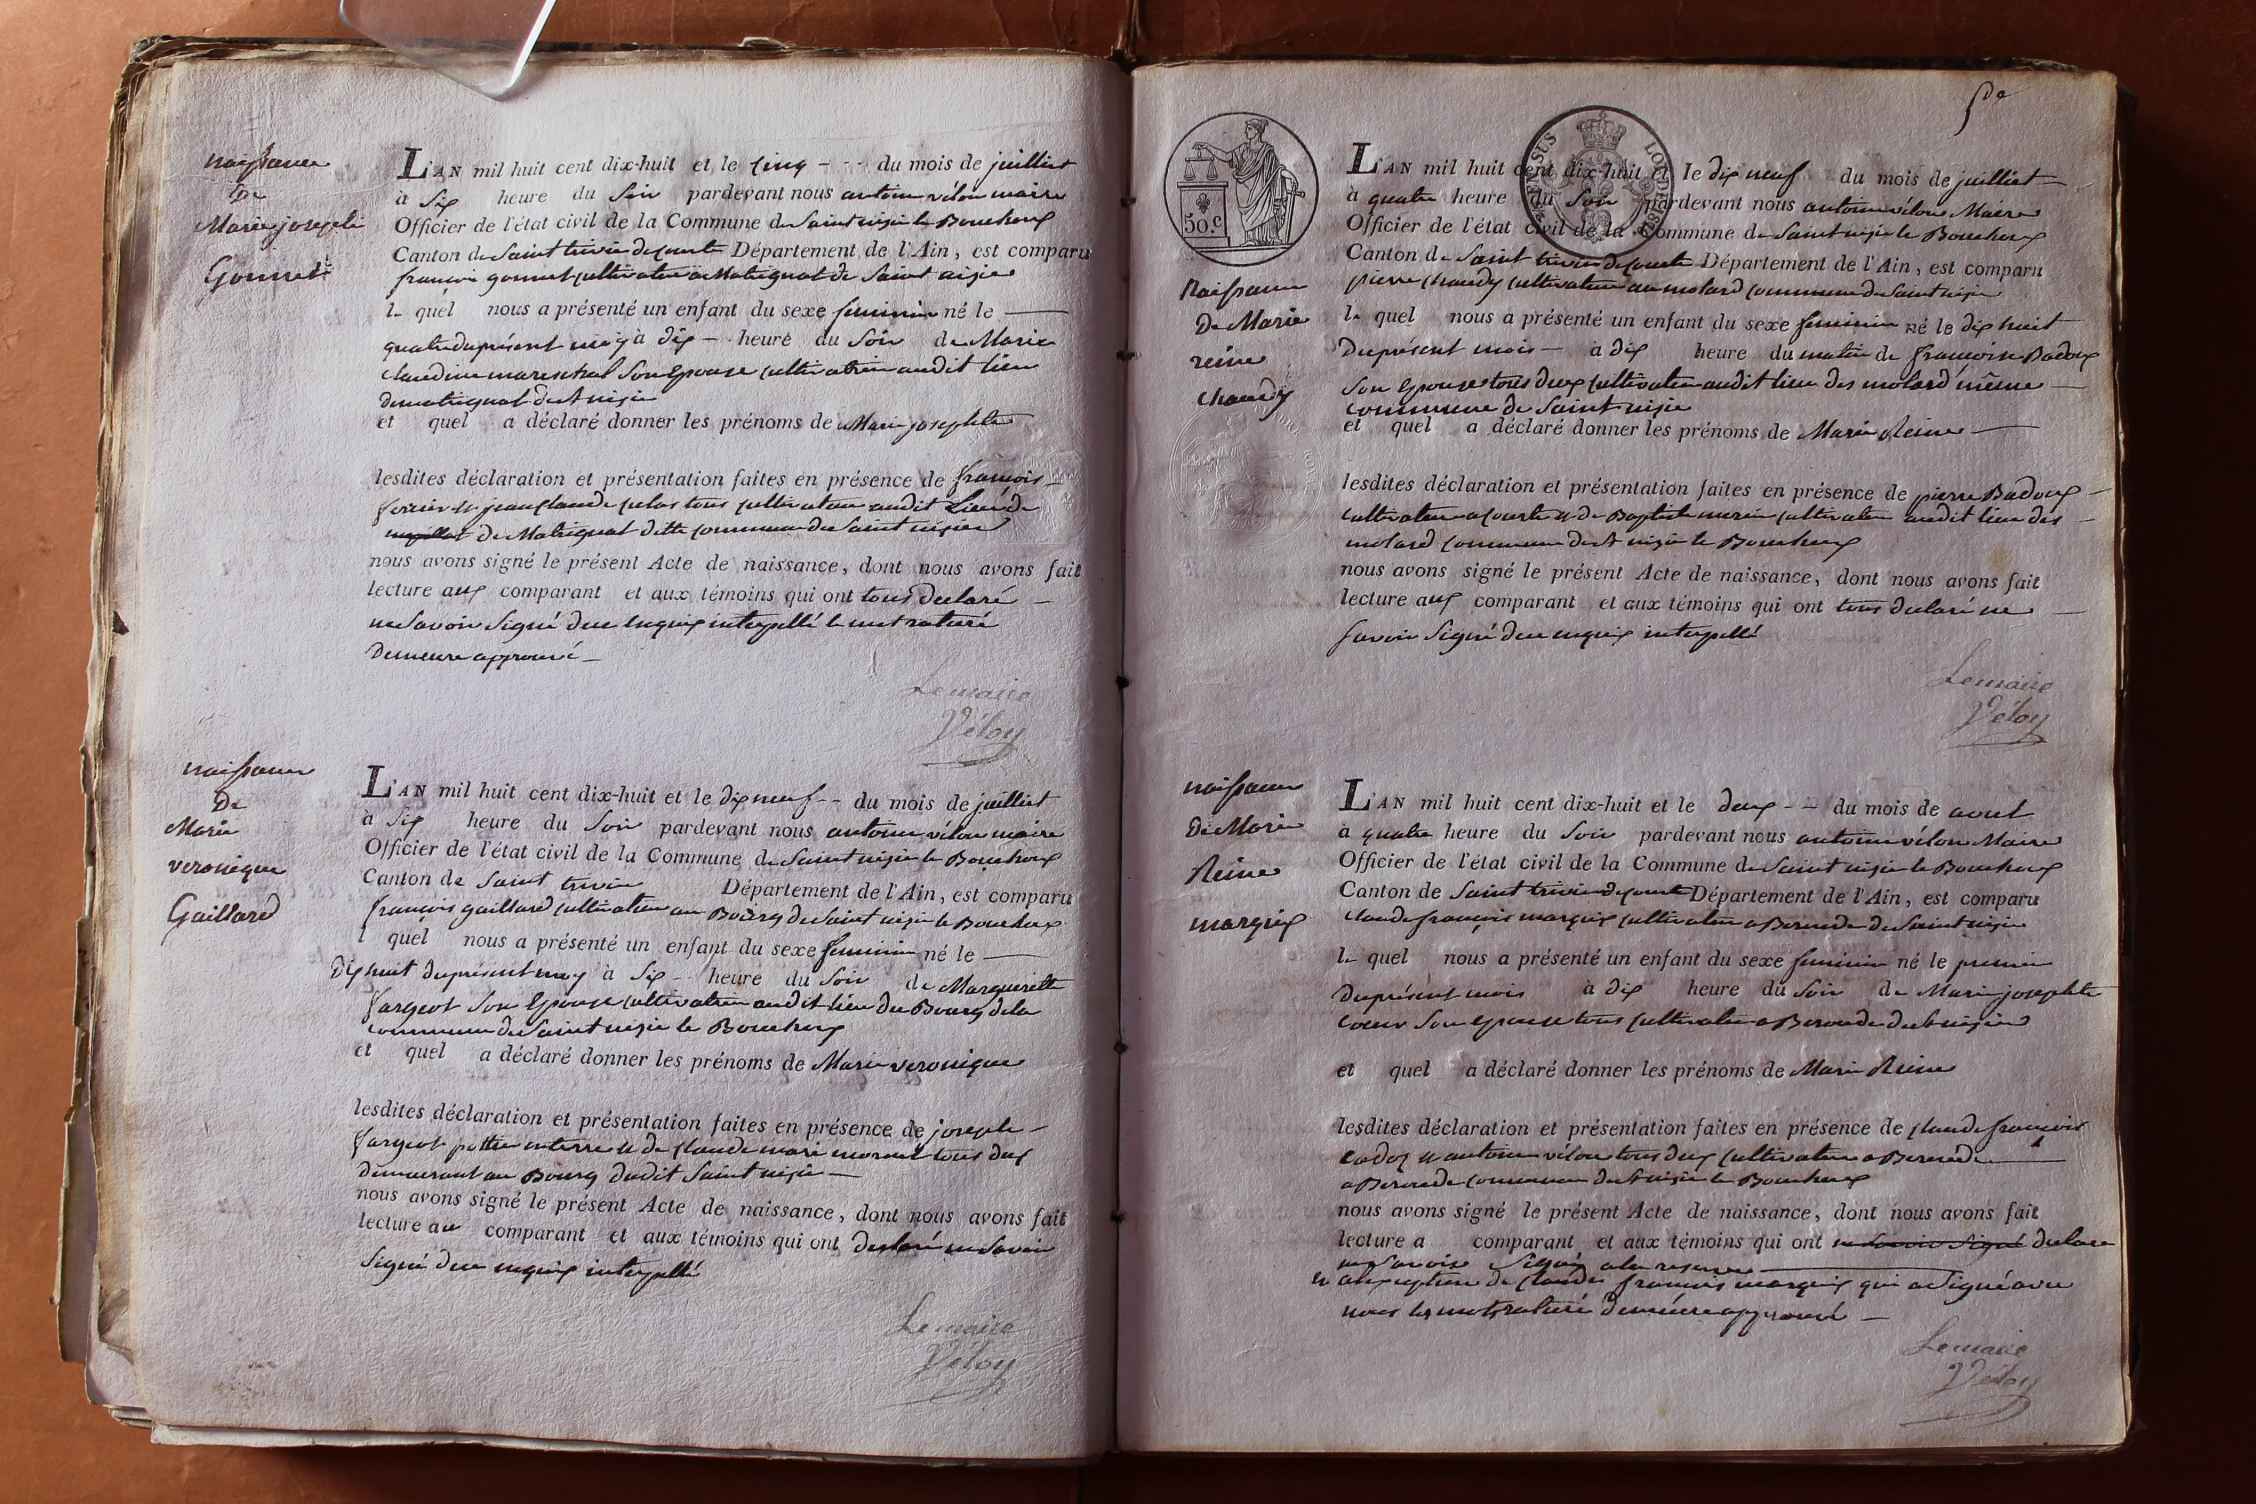 naissance
de
Marie josephte
Gonnet
L'AN mil huit cent dix-huit et le cinq - - - du mois de juilliet
à six heure du soir pardevant nous antoine véloy maire
Officier de l'état civil de la Commune de Saint nizie le Bouchoux
Canton de Saint trivier de courte Département de l'Ain, est comparu
françois gonnet cultivateur a Matrignat de Saint nizie
le quel nous a présenté un enfant du sexe feminin né le
quatre du présent moy à dix - heure du soir de Marie
claudine marechal son Epouse cultivatrice audit lieu
de matrignat de st nizie
et quel a déclaré donner les prénoms de Marie josephte
lesdites déclaration et présentation faites en présence de françois
ferrier et jean claude tous cultivateur audit Lieu de
de Matrignat ditte commune de Saint nizie
nous avons signé le présent Acte de naissance, dont nous avons fait
lecture aux comparant et aux témoins qui ont tous declaré
ne savoir signé de ce enquix interpellé le mot raturé
demeure approuvé
Lemaire
Véloy
naissance
De
Marie
veronique
Gaillard
L'AN mil huit cent dix-huit et le dix neuf - - du mois de juilliet
à six heure du soir pardevant nous antoine véloy maire
Officier de l'état civil de la Commune de Saint nizie le Bouchoux
Canton de Saint trivier Département de l'Ain, est comparu
françois gaillard cultivateur au Bourg de Saint nizie le Bouchoux
l quel nous a présenté un enfant du sexe feminin né le
dix huit du présent moy à six - heure du soir de Margueritte
fargeot son Epouse cultivatrice audit lieu du Bourg de la
commune de Saint nizie le Bouchoux
et quel a déclaré donner les prénoms de Marie veronique
lesdites déclaration et présentation faites en présence de joseph
fargeot pottier en terre et de claude marie morand tous dux
demeurant au Bourg dudit Saint nizie
nous avons signé le présent Acte de naissance, dont nous avons fait
lecture au comparant et aux témoins qui ont declaré ne savoir
signé de ce enquix interpellé
Lemaire
Véloy
5e
50.c
Naissance
De Marie
reine
chaudy
L'AN mil huit cent dix-huit et le dix neuf du mois de juilliet
à quatre heure du soir pardevant nous antoine véloy Maire
Officier de l'état civil de la Commune de Saint nizie le Bouchoux
Canton de Saint trivier de courte Département de l'Ain, est comparu
pierre chaudy cultivateur au molard commune de Saint nizie
le quel nous a présenté un enfant du sexe feminin né le dix huit
du présent mois - à dix heure du matin de françoise Badoux
son Epouse tous deux cultivateur audit lieu des molard même
commune de Saint nizie
et quel a déclaré donner les prénoms de Marie Reine
lesdites déclaration et présentation faites en présence de pierre Badoux
cultivateur a courte et de Baptiste cultivateur audit lieu des
molard commune de st nizie le Bouchoux
nous avons signé le présent Acte de naissance, dont nous avons fait
lecture aux comparant et aux témoins qui ont tous declaré ne
savoir signé de ce enquix interpellé
Lemaire
Véloy
naissance
De Marie
Reine
marquix
L'AN mil huit cent dix-huit et le deux - - du mois de aout
à quatre heure du soir pardevant nous antoine véloy Maire
Officier de l'état civil de la Commune de Saint nizie le Bouchoux
Canton de Saint trivier de courte Département de l'Ain, est comparu
claude françois marquix cultivateur a Beroude de Saint nizie
le quel nous a présenté un enfant du sexe feminin né le premier
du présent mois à dix heure du soir de Marie josephte
coeur son epouse tous cultivateur a Beroude de st nizie
et quel a déclaré donner les prénoms de Marie Reine
lesdites déclaration et présentation faites en présence de claude françois
cadoz et antoine véloy tous deux cultivateur a Beroude
a Beroude commune de st nizie le Bouchoux
nous avons signé le présent Acte de naissance, dont nous avons fait
lecture a comparant et aux témoins qui ont ne savoir signé declare
ne savoir signé a la reserve
et axception de claude françois marquix qui a signé avec
nous les mots raturé demeure approuvé
Lemaire
Véloy